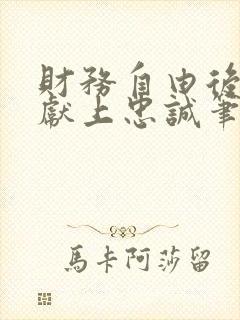 財務自由後
獻上忠誠筆
馬卡阿莎留